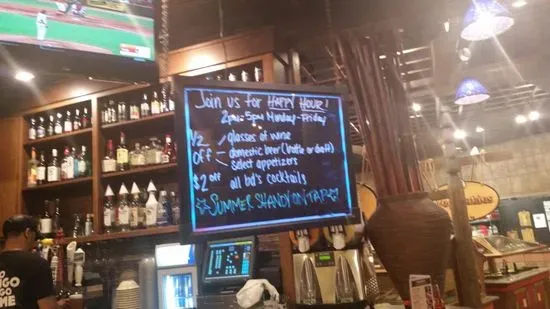 Join us for HAPPY HOUR!
2pm-5pm Monday-Friday
1/2 off - glasses of wine
- domestic beer (bottle or draft)
- select appetizers
$2 off all bd's cocktails
☆SUMMER SHANDY ON TAP☆
GO